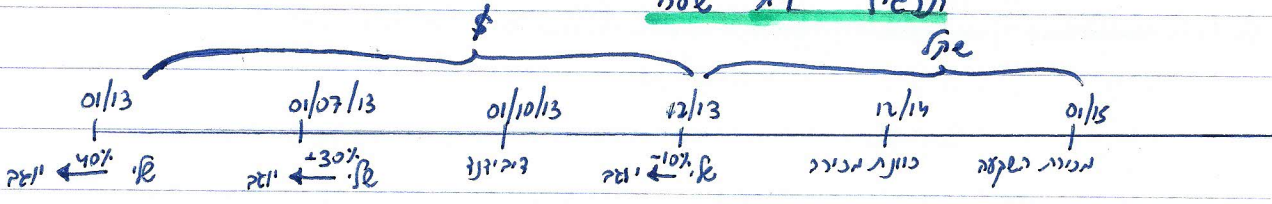 $
שקל
01/13 01/07/13 01/10/13 12/13 12/14 01/15
שלי 40% יוגב שלי +30% יוגב דיבידנד שלי -10% יוגב כוונת מכירה מכירת השקעה